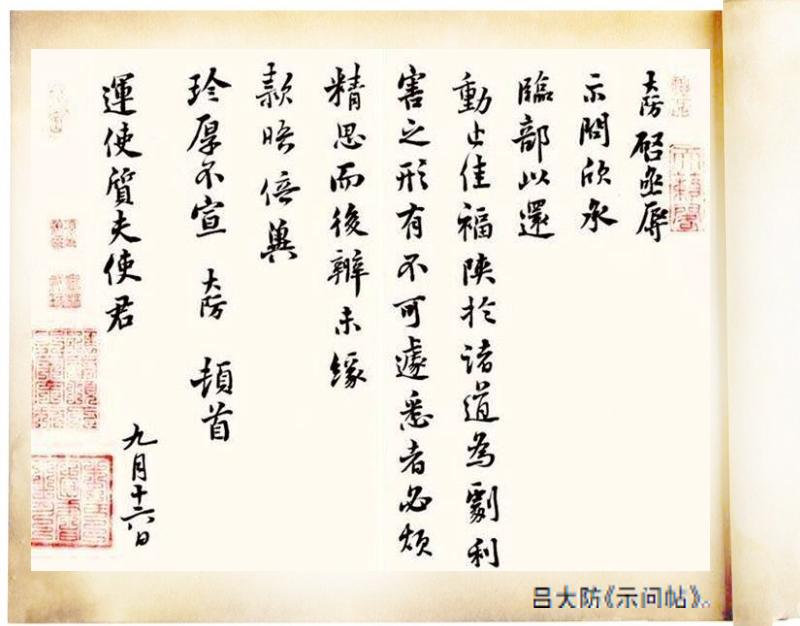 大防啓亟辱
示問欣承
臨部以還
動止佳福陝於諸道為劇利
害之形有不可遽悉者必煩
精思而後辦未緣
款晤倍冀
珍厚不宣 大防 頓首
運使質夫使君
九月十六日
吕大防《示问帖》